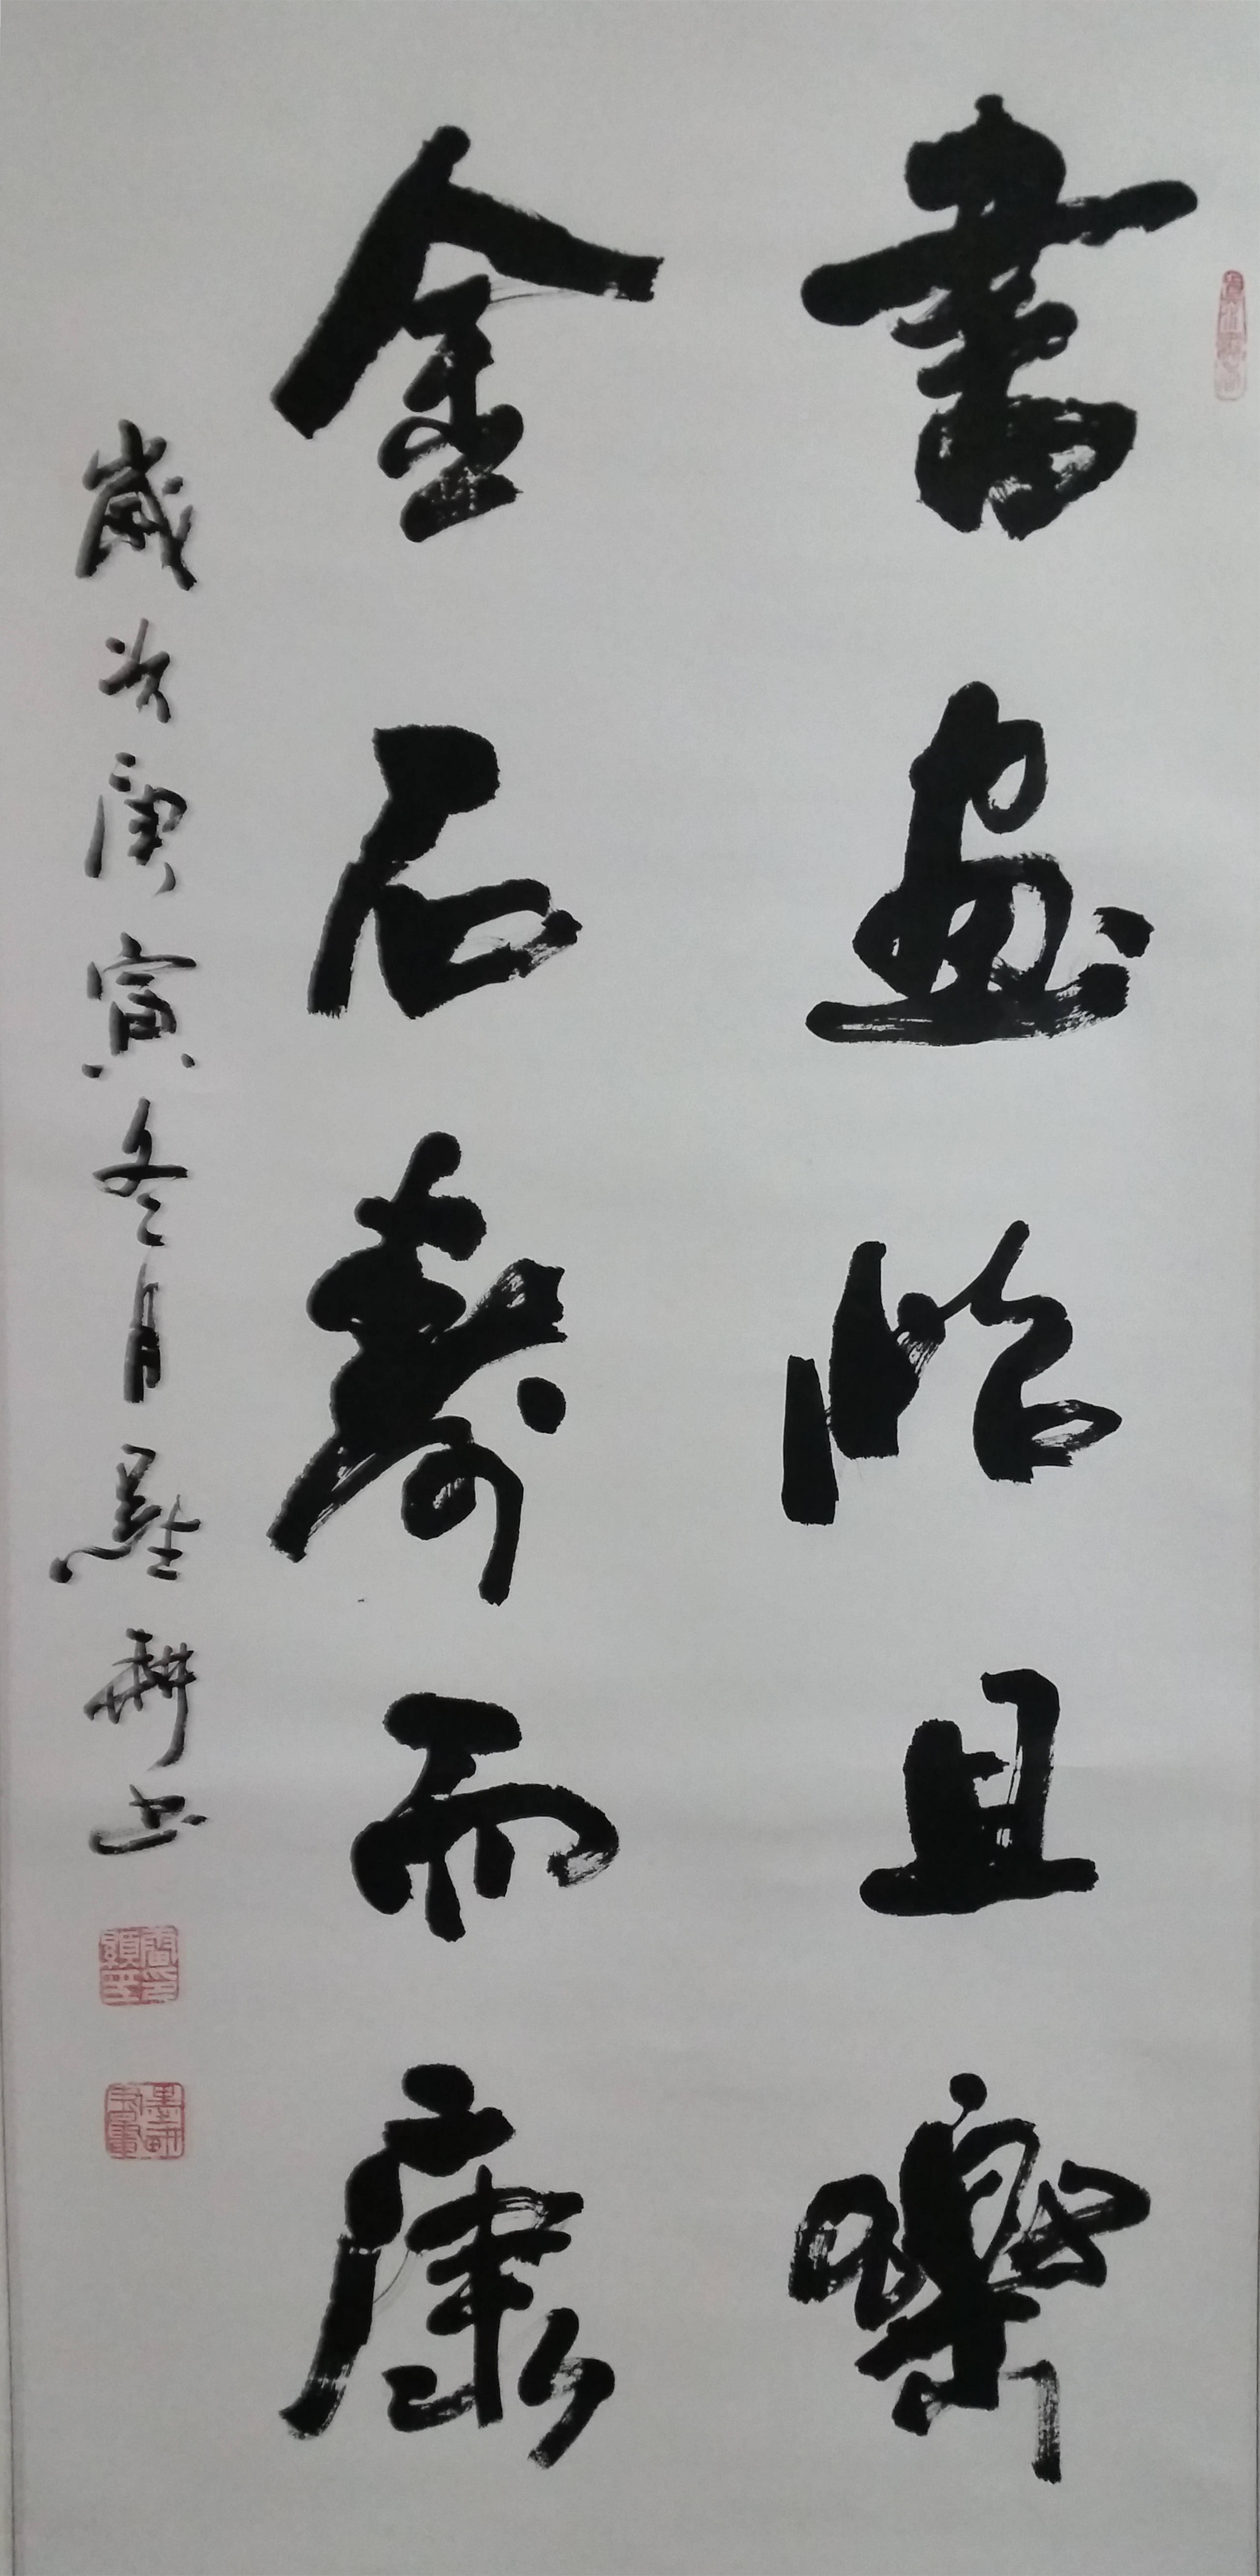 書画怡且樂
金石壽而康
歲次庚寅冬月墨耕书